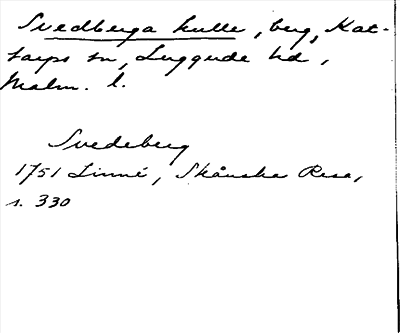 Svedberga kulle, berg, Kat-
tarps sn, Luggude hd,
Malm. l.
Svedeberg
1751 Linné, Skånska Resa,
s. 330